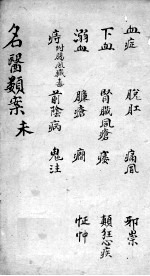 血症 脫肛 痛風 邪祟
下血 腎臟風瘡 痿 顛狂心疾
溺血 臁瘡 癇 怔忡
痔附腸風臟毒 前陰病 鬼注
名醫類案 未